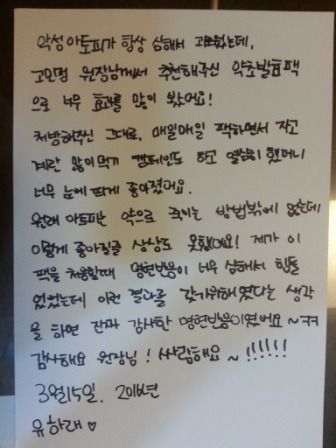 악성아토피가 항상 심해서 고민였는데,
고민정 원장님께서 추천해주신 약초발효팩
으로 너무 효과를 많이 봤어요!
처방해주신 그대로, 매일매일 팩하면서 자고
계란 많이먹기 캠페인도 하고 열심히 했더니
너무 눈에 띄게 좋아졌어요.
원래 아토피는 약으로 죽이는 방법밖에 없는데
이렇게 좋아질줄 상상도 못했어요! 제가 이
팩을 처음할때 명현반응이 너무 심해서 힘들
었었는데 이런 결과를 갖기위해였다는 생각
을 하면 진짜 감사한 명현반응이였어요~ㅋㅋ
감사해요 원장님! 사랑해요~!!!!!!
3월15일. 2016년
유하래♡